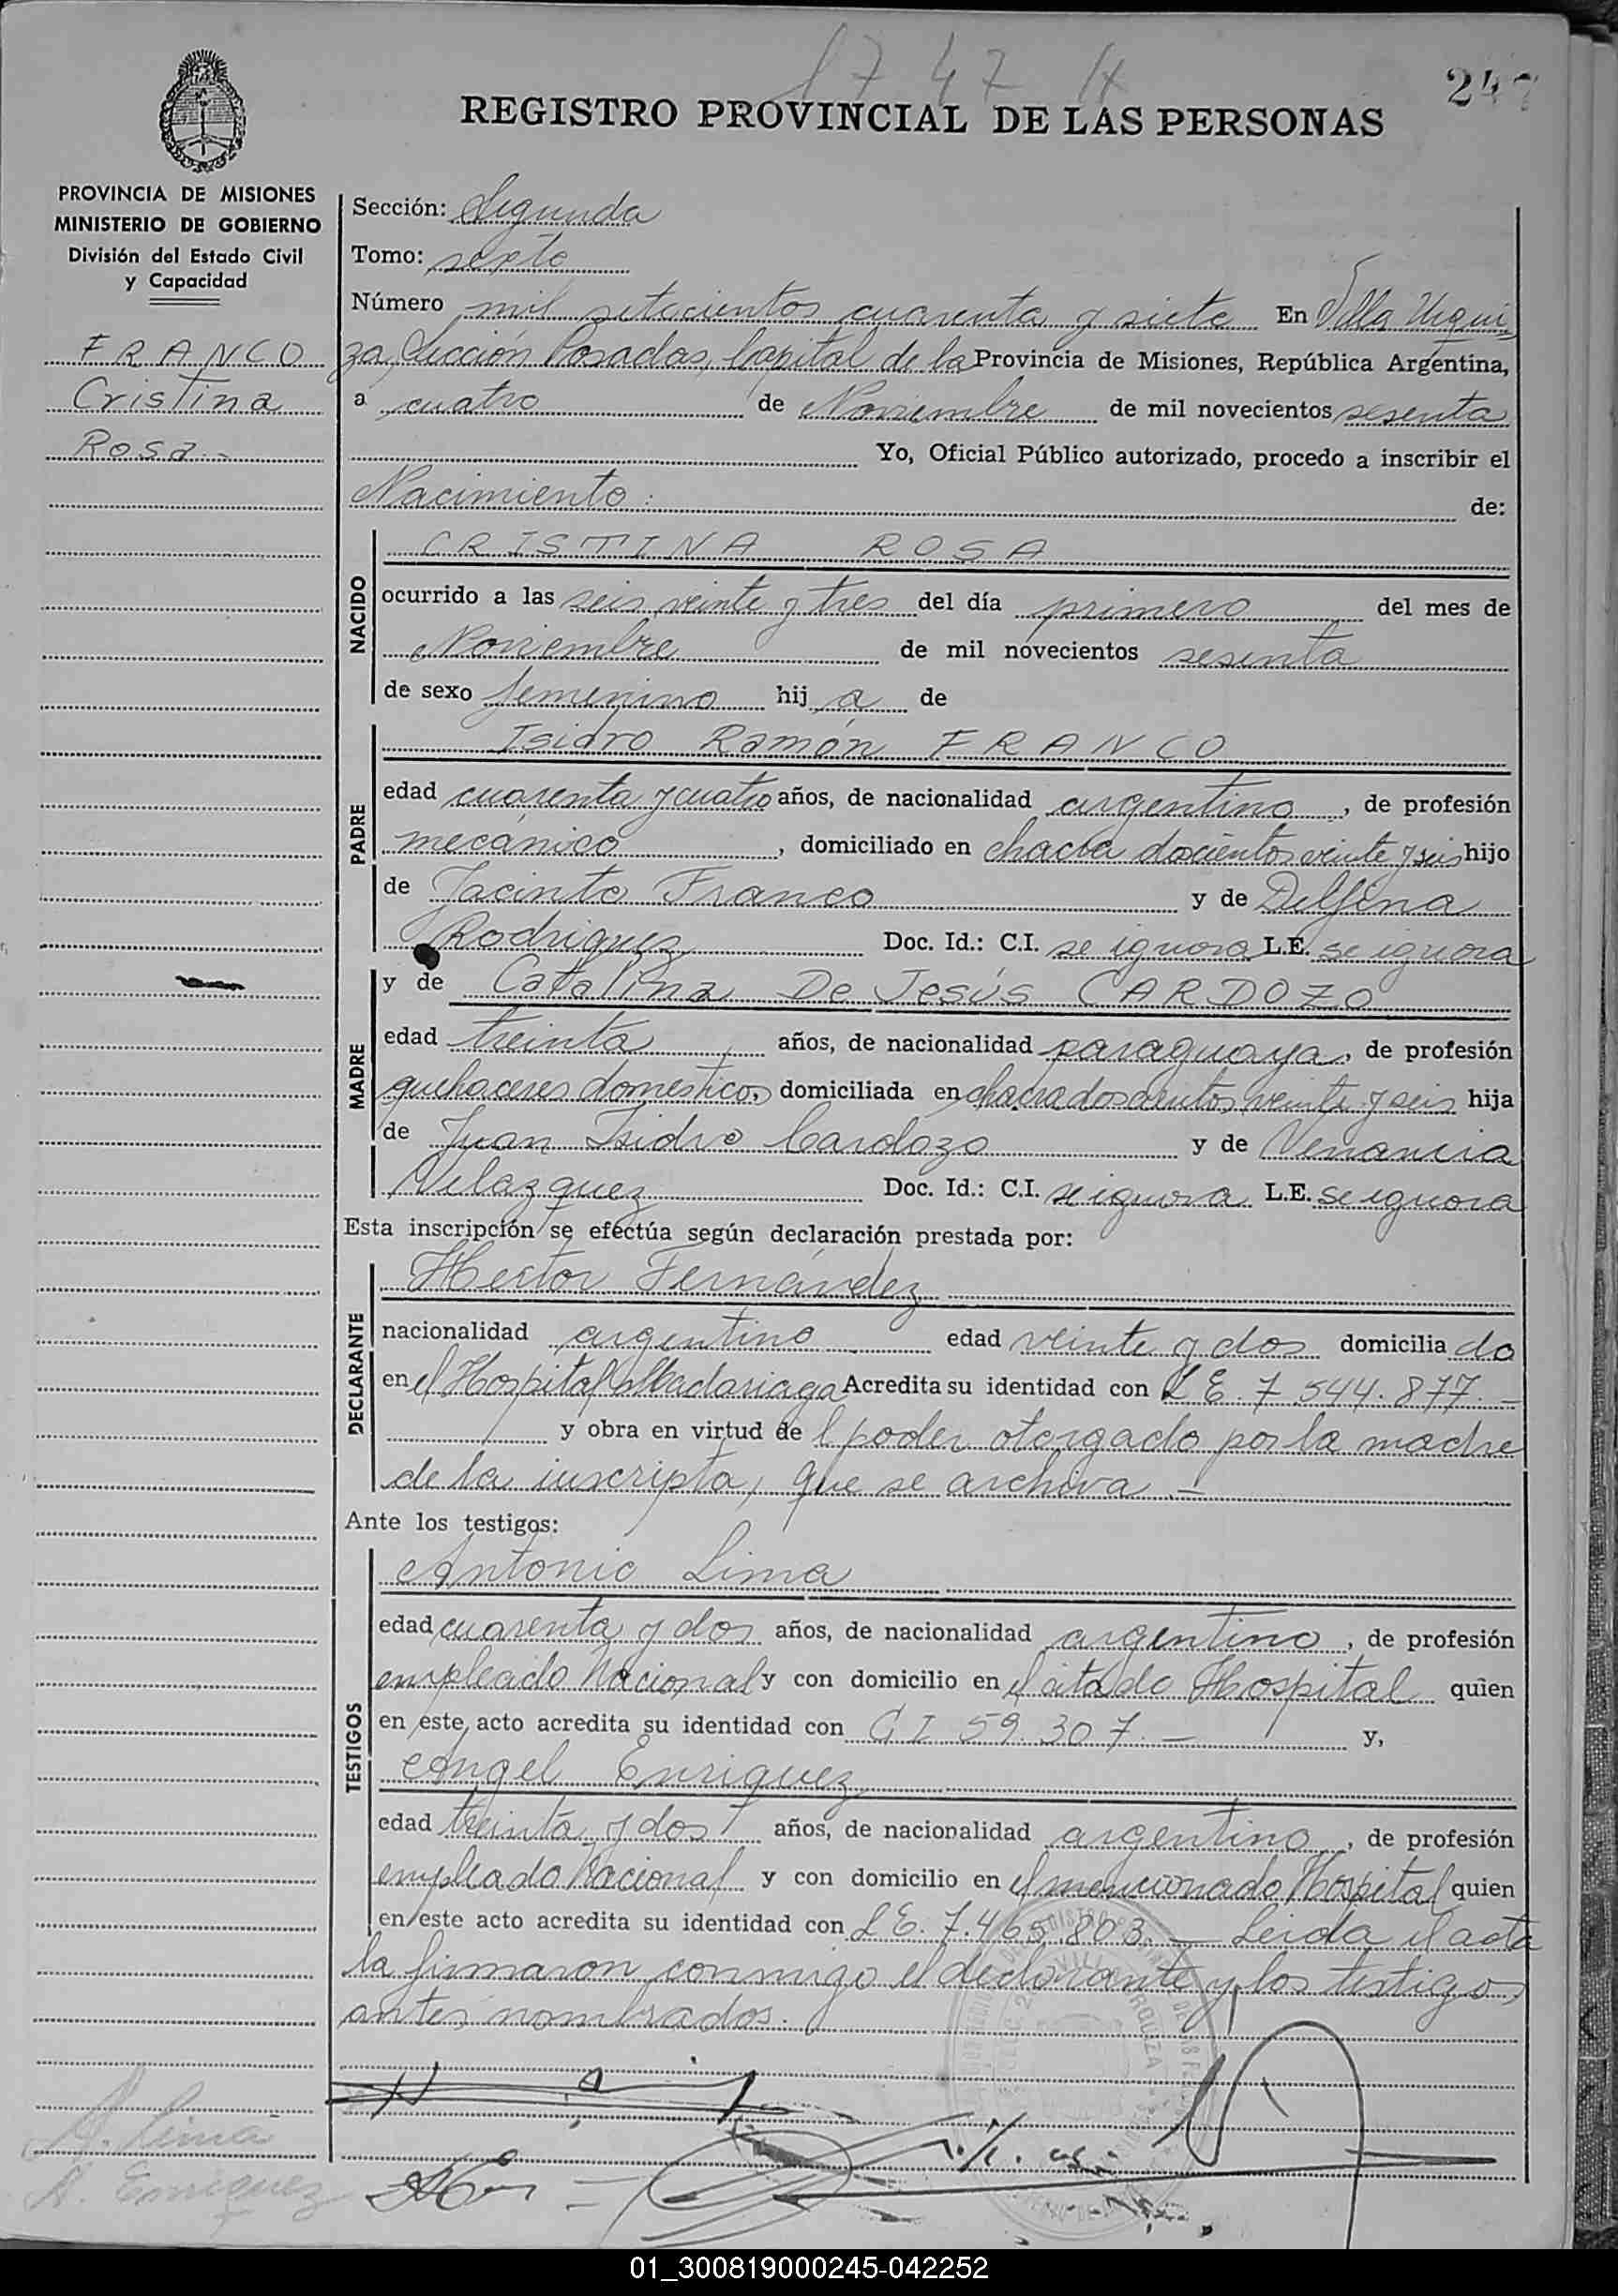 1747
247
REGISTRO PROVINCIAL DE LAS PERSONAS
PROVINCIA DE MISIONES
MINISTERIO DE GOBIERNO
División del Estado Civil
y Capacidad
FRANCO
Cristina
Rosa.-
Sección: Segunda
Tomo: sexto
Número mil setecientos cuarenta y siete En Villa Urqui
za, Sección Posadas, Capital de la Provincia de Misiones, República Argentina,
a cuatro de Noviembre de mil novecientos sesenta
Yo, Oficial Público autorizado, procedo a inscribir el
Nacimiento: de:
NACIDO
CRISTINA ROSA
ocurrido a las seis veinte y tres del día primero del mes de
Noviembre de mil novecientos sesenta
de sexo femenino hij a de
PADRE
Isidro Ramón FRANCO
edad cuarenta y cuatro años, de nacionalidad argentino, de profesión
mecánico, domiciliado en chacra doscientos veinte y seis hijo
de Jacinto Franco y de Delfina
Rodriguez Doc. Id.: C.I. se ignora L.E. se ignora
MADRE
y de Catalina De Jesús CARDOZO
edad treinta años, de nacionalidad paraguaya, de profesión
quehaceres domésticos, domiciliada en chacra doscientos veinte y seis hija
de Juan Isidro Cardozo y de Venancia
Velazquez Doc. Id.: C.I. se ignora L.E. se ignora
Esta inscripción se efectúa según declaración prestada por:
DECLARANTE
Hector Fernández
nacionalidad argentino edad veinte y dos domicilia do
en el Hospital Madariaga Acredita su identidad con L E. 7 544.877.-
y obra en virtud de l poder otorgado por la madre
de la inscripta, que se archiva.-
Ante los testigos:
TESTIGOS
Antonio Lima
edad cuarenta y dos años, de nacionalidad argentino, de profesión
empleado Nacional y con domicilio en el citado Hospital quien
en este acto acredita su identidad con C I 59.307.- y,
Angel Enriquez
edad treinta y dos años, de nacionalidad argentino, de profesión
empleado Nacional y con domicilio en el mencionado Hospital quien
en este acto acredita su identidad con L E. 7.465.803.- Leida el acta
la firmaron conmigo el declarante y los testigos
antes nombrados.
A. Lima
A. Enriquez
01_300819000245-042252